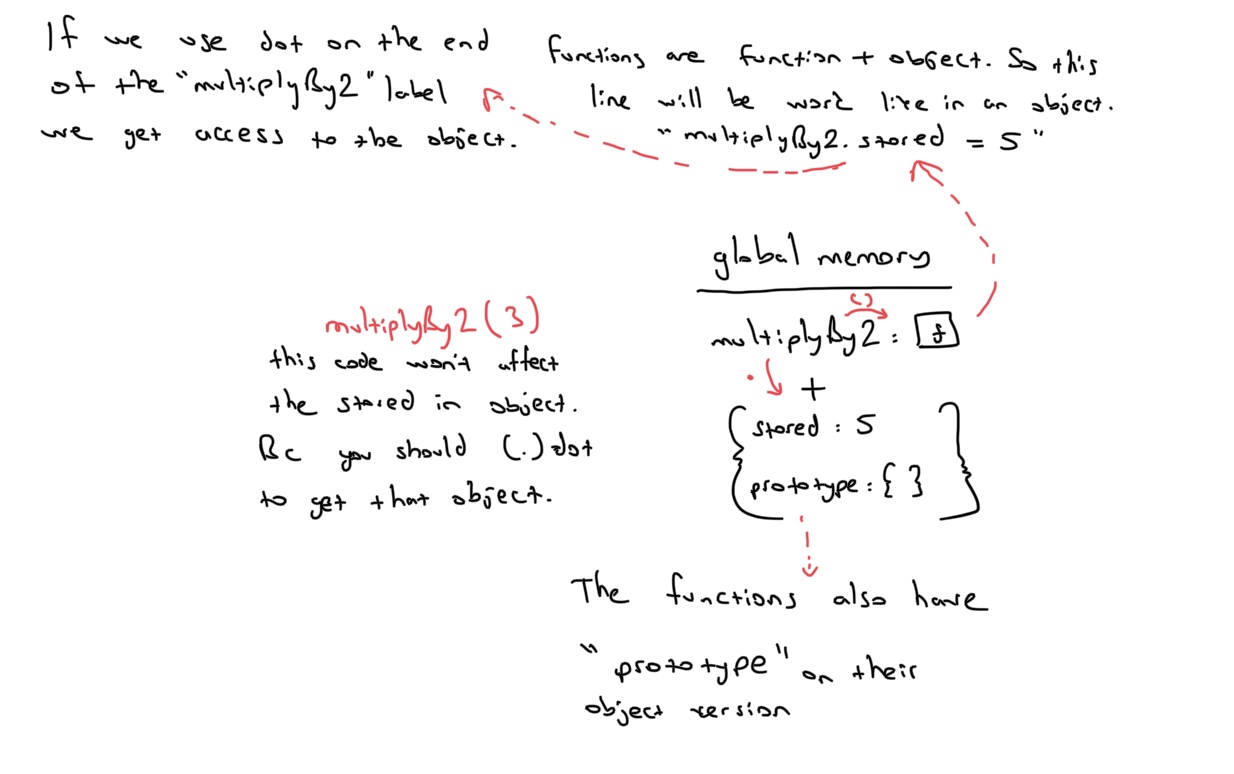 If we use dot on the end
of the "multiplyBy2" label
we get access to the object.
functions are function + object. So this
line will be work like in an object.
"multiplyBy2.stored = 5"
global memory
()
multiplyBy2 : f
+
stored : 5
prototype : { }
multiplyBy2(3)
this code won't affect
the stored in object.
Bc you should (.) dot
to get that object.
The functions also have
"prototype" on their
object version